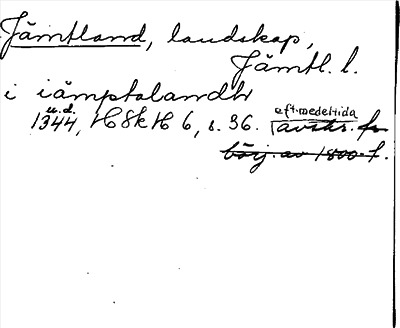 Jämtland, landskap,
Jämtl. l.
i iämptalandh
u.d.
1344, HSkH 6, s. 36.
eft.medeltida
avskr. fr.
börj. av 1800-t.